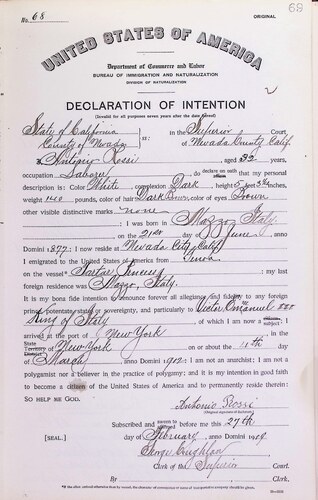 69
No. 68
ORIGINAL
UNITED STATES OF AMERICA
Department of Commerce and Labor
BUREAU OF IMMIGRATION AND NATURALIZATION
DIVISION OF NATURALIZATION
DECLARATION OF INTENTION
(Invalid for all purposes seven years after the date hereof)
State of California
County of Nevada ss: In the Superior Court,
of Nevada County Calif.
I, Rossi, aged 32 years,
occupation Laborer, do declare on oath that my personal
description is: Color White, complexion Dark, height 5 feet inches,
weight 140 pounds, color of hair Dark Brown, color of eyes Brown
other visible distinctive marks none
I was born in Italy
on the 21st day of June, anno
Domini 1877; I now reside at Nevada City, Calif.
I emigrated to the United States of America from Genoa
on the vessel* ; my last
foreign residence was Italy.
It is my bona fide intention to renounce forever all allegiance and fidelity to any foreign
prince, potentate, state, or sovereignty, and particularly to Victor Emanuel
King of Italy, of which I am now a subject; I
arrived at the port of New York, in the
State Territory District of New York on or about the 11th day
of March, anno Domini; I am not an anarchist; I am not a
polygamist nor a believer in the practice of polygamy; and it is my intention in good faith
to become a citizen of the United States of America and to permanently reside therein:
SO HELP ME GOD.
Antonio Rossi
(Original signature of declarant)
Subscribed and sworn to before me this 27th
[SEAL.] day of February, anno Domini 1909.
Clerk of the Superior Court.
By , Clerk.